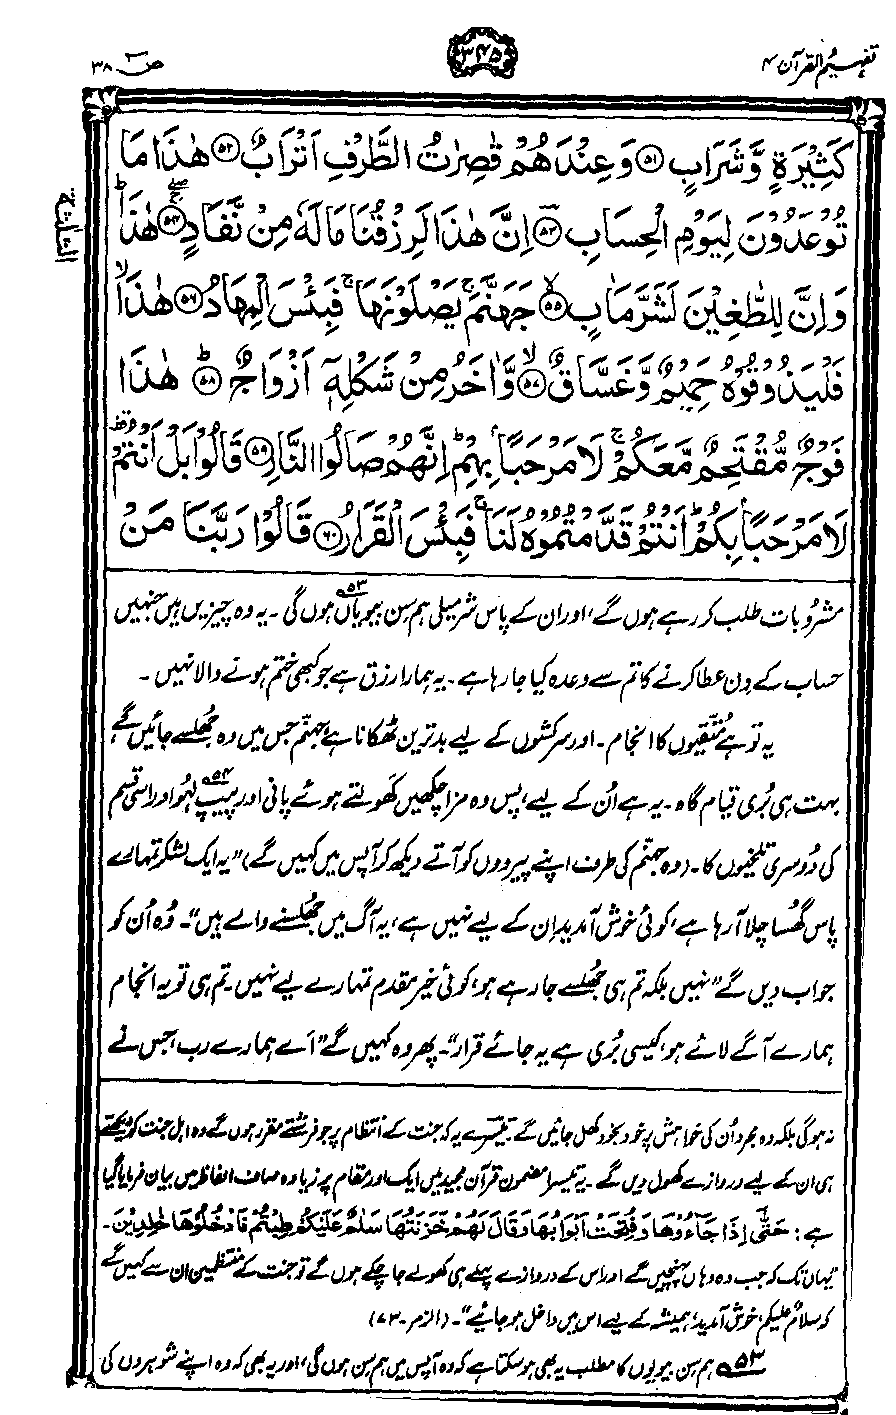 تفہیم القرآن ۴
۳۴۵
صٓ ۳۸
كَثِيْرَةٍ وَّشَرَابٍ ۵۱ وَعِنْدَهُمْ قٰصِرٰتُ الطَّرْفِ اَتْرَابٌ ۵۲ هٰذَا مَا
تُوْعَدُوْنَ لِيَوْمِ الْحِسَابِ ۵۳ اِنَّ هٰذَا لَرِزْقُنَا مَا لَهٗ مِنْ نَّفَادٍ ۵۴ هٰذَا
وَاِنَّ لِلطّٰغِيْنَ لَشَرَّ مَاٰبٍ ۵۵ جَهَنَّمَ يَصْلَوْنَهَا فَبِئْسَ الْمِهَادُ ۵۶ هٰذَا
فَلْيَذُوْقُوْهُ حَمِيْمٌ وَّغَسَّاقٌ ۵۷ وَّاٰخَرُ مِنْ شَكْلِهٖٓ اَزْوَاجٌ ۵۸ هٰذَا
فَوْجٌ مُّقْتَحِمٌ مَّعَكُمْ لَا مَرْحَبًۢا بِهِمْ اِنَّهُمْ صَالُوا النَّارِ ۵۹ قَالُوْا بَلْ اَنْتُمْ
لَا مَرْحَبًۢا بِكُمْ اَنْتُمْ قَدَّمْتُمُوْهُ لَنَا فَبِئْسَ الْقَرَارُ ۶۰ قَالُوْا رَبَّنَا مَنْ
مشروبات طلب کر رہے ہوں گے، اور ان کے پاس شرمیلی ہم سن بیویاں ۵۳ ہوں گی۔ یہ وہ چیزیں ہیں جنہیں
حساب کے دن عطا کرنے کا تم سے وعدہ کیا جا رہا ہے۔ یہ ہمارا رزق ہے جو کبھی ختم ہونے والا نہیں۔
یہ تو ہے مُتّقیوں کا انجام۔ اور سرکشوں کے لیے بدترین ٹھکانا ہے جہنّم جس میں وہ جُھلسے جائیں گے،
بہت ہی بُری قیام گاہ۔ یہ ہے اُن کے لیے، پس وہ مزا چکھیں کَھولتے ہوئے پانی اور پیپ لہُو ۵۴ اور اسی قسم
کی دُوسری تلخیوں کا۔ (وہ جہنّم کی طرف اپنے پیرووں کو آتے دیکھ کر آپس میں کہیں گے) ”یہ ایک لشکر تمہارے
پاس گھُسا چلا آ رہا ہے، کوئی خوش آمدید اِن کے لیے نہیں ہے، یہ آگ میں جُھلسنے والے ہیں“۔ وُہ اُن کو
جواب دیں گے ”نہیں بلکہ تم ہی جُھلسے جا رہے ہو، کوئی خیر مقدم تمہارے لیے نہیں۔ تم ہی تو یہ انجام
ہمارے آگے لائے ہو، کیسی بُری ہے یہ جائے قرار“۔ پھر وہ کہیں گے ”اَے ہمارے رب، جس نے
نہ ہوگی بلکہ وہ مجرد اُن کی خواہش پر خود بخود کھل جائیں گے۔ تیسرے یہ کہ جنت کے انتظام پر جو فرشتے مقرر ہوں گے وہ اہل جنت کو دیکھتے
ہی ان کے لیے دروازے کھول دیں گے۔ یہ تیسرا مضمون قرآن مجید میں ایک اور مقام پر زیادہ صاف الفاظ میں بیان فرمایا گیا
ہے: حَتّٰٓى اِذَا جَآءُوْهَا وَفُتِحَتْ اَبْوَابُهَا وَقَالَ لَهُمْ خَزَنَتُهَا سَلٰمٌ عَلَيْكُمْ طِبْتُمْ فَادْخُلُوْهَا خٰلِدِيْنَ۔
”یہاں تک کہ جب وہ وہاں پہنچیں گے اور اس کے دروازے پہلے ہی کھولے جا چکے ہوں گے تو جنت کے منتظمین ان سے کہیں گے
کہ سلامٌ علیکم، خوش آمدید، ہمیشہ کے لیے اس میں داخل ہو جائیے“۔ (الزمر۔ ۷۳)
۵۳ ہم سن بیویوں کا مطلب یہ بھی ہو سکتا ہے کہ وہ آپس میں ہم سن ہوں گی، اور یہ بھی کہ وہ اپنے شوہروں کی